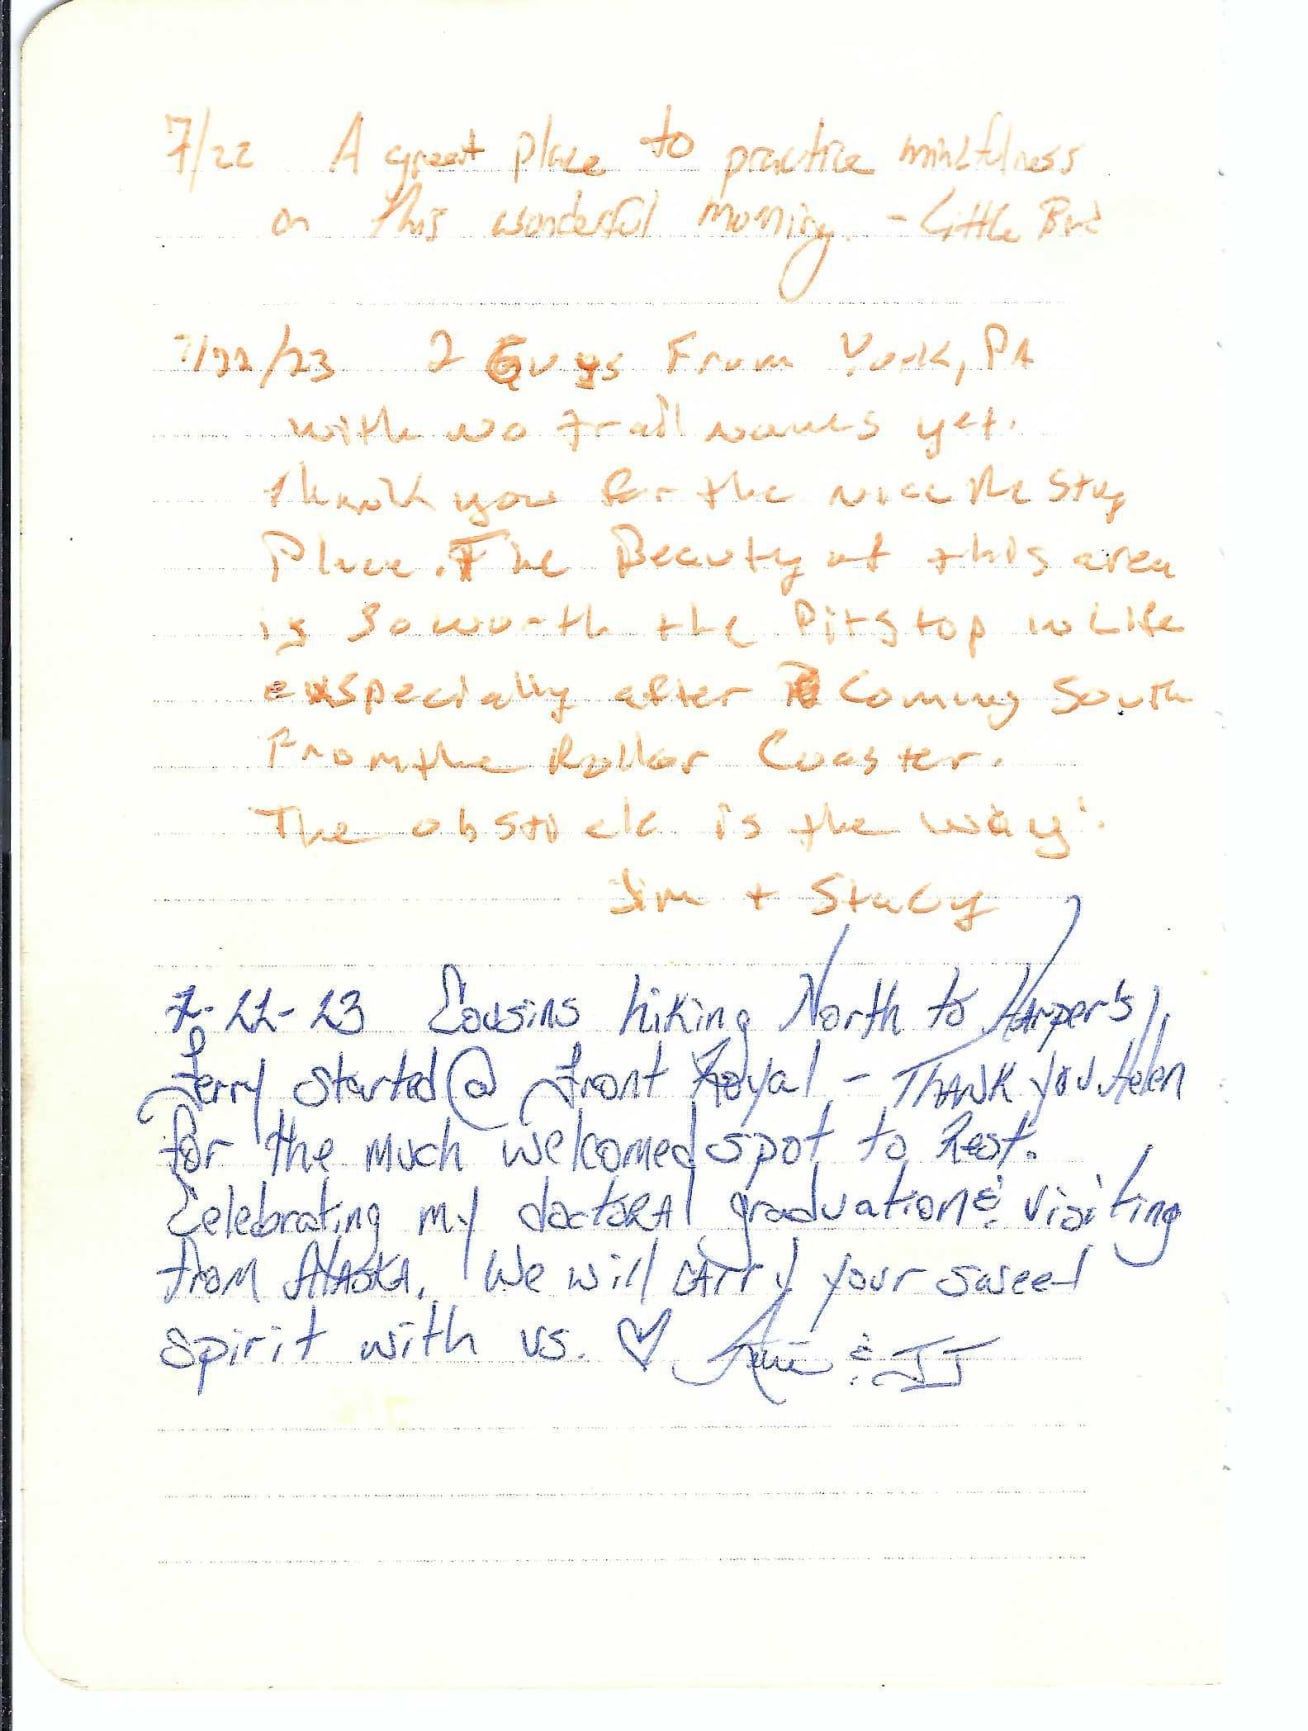 7/22 A great place to practice mindfulness
on this wonderful morning. - Little Bird
7/22/23 2 Guys From York, PA
with no trail names yet.
thank you for the nice Re Stug
Place. The Beauty of this area
is So worth the Pit stop in Life
especially after Coming South
From the Roller Coaster.
The obsticle is the way.
Jim + Stacy
7-22-23 Cousins hiking North to Harper's
Ferry started @ Front Royal - THANK you Helen
for the much welcomed spot to Rest.
Celebrating my doctoral graduation & visiting
from ALASKA. We will carry your sweet
spirit with us. ♡ & JJ